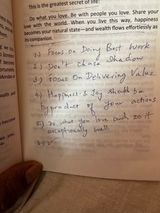 This is the greatest secret of life:
Do what you love. Be with people you love. Share your
love with the world. When you live this way, happiness
becomes your natural state—and wealth flows effortlessly as
its companion.
1) Focus on Doing Best Work
2) Don't Chase Shadow
3) Focus on Delivering Value
4) Happiness & Joy should be
byproduct of your actions
5) Do what you love and do it
exceptionally well